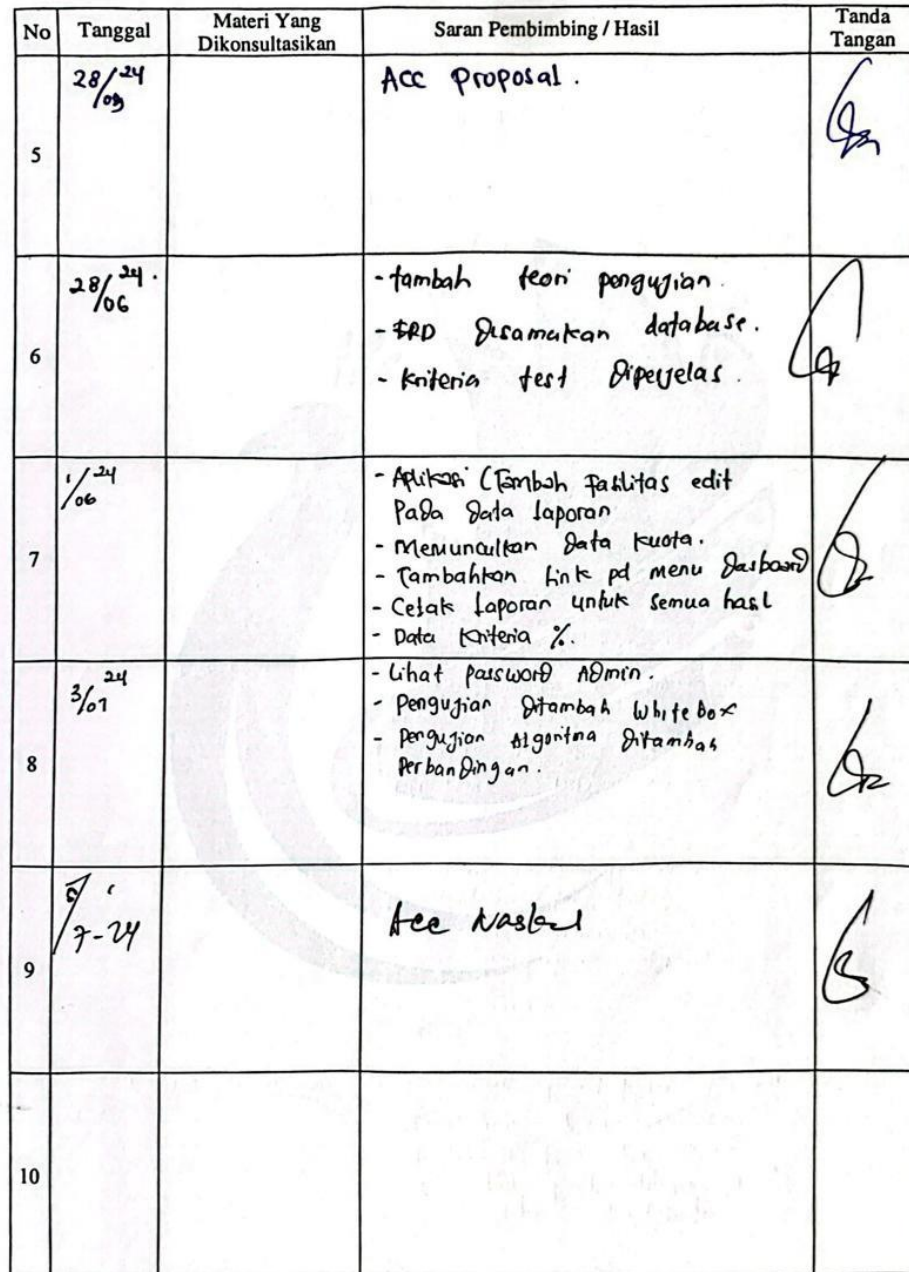 No Tanggal Materi Yang Dikonsultasikan Saran Pembimbing / Hasil Tanda Tangan
5 28/24 Acc proposal.
6 28/06 24. - tambah teori pengujian.
- ERD disamakan database.
- Kriteria test diperjelas.
7 1/06 24 - Aplikasi (Tambah fasilitas edit
pada data laporan
- Memunculkan data kuota.
- Tambahkan link pd menu dasboard
- Cetak laporan untuk semua hasil
- Data kriteria %.
8 3/07 24 - Lihat password Admin.
- Pengujian ditambah White box
- Pengujian Algoritma ditambah
Perbandingan.
9 /7-24 Acc
10